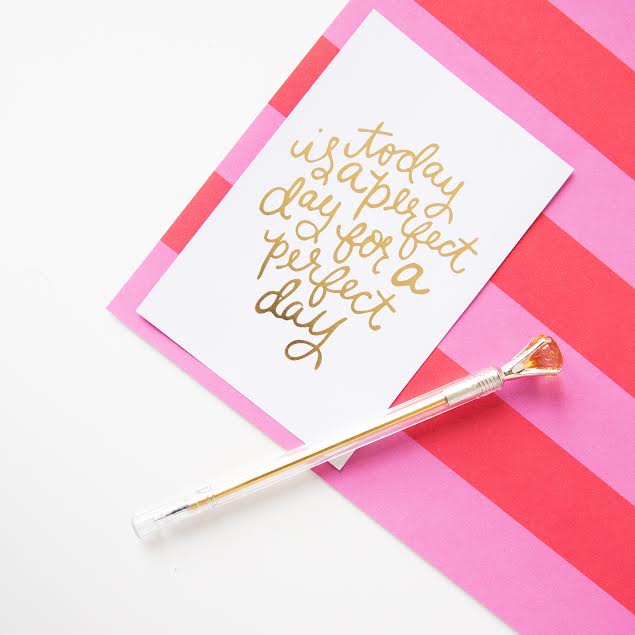 today
is a perfect
day for a
perfect
day